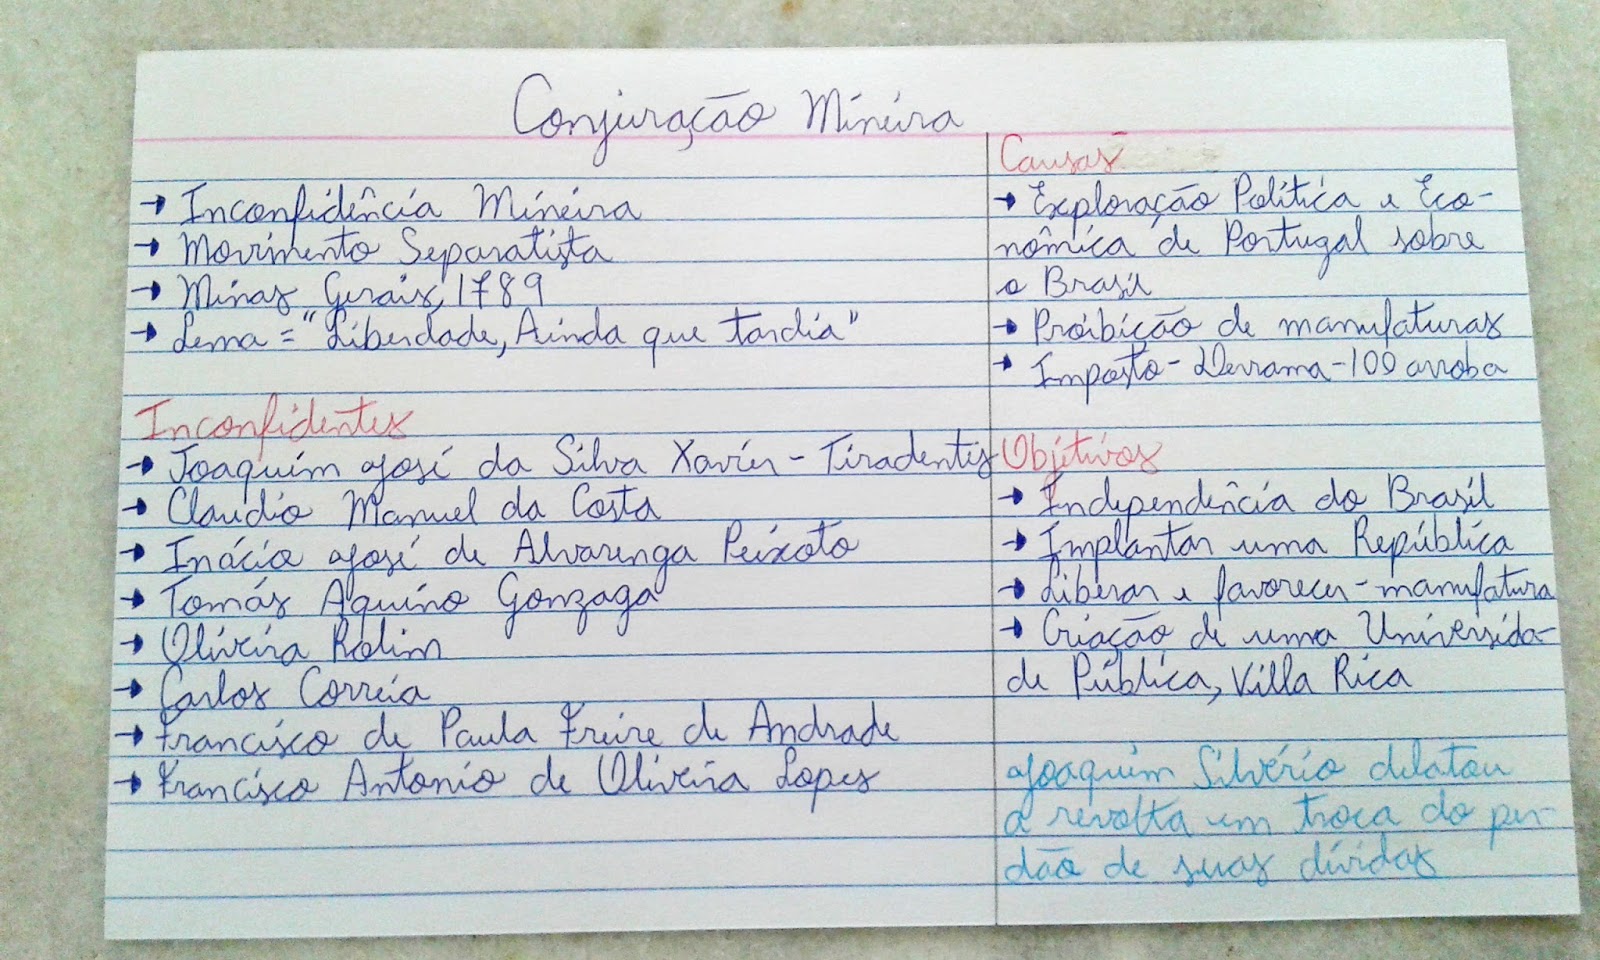 Conjuração Mineira
→ Inconfidência Mineira
→ Movimento Separatista
→ Minas Gerais, 1789
→ Lema = "Liberdade, Ainda que tardia"
Inconfidentes
→ Joaquim José da Silva Xavier - Tiradentes
→ Claudio Manuel da Costa
→ Inácio José de Alvarenga Peixoto
→ Tomás Aquino Gonzaga
→ Oliveira Rolim
→ Carlos Correia
→ Francisco de Paula Freire de Andrade
→ Francisco Antonio de Oliveira Lopes
Causas
→ Exploração Política e Eco-
nômica de Portugal sobre
o Brasil
→ Proibição de manufaturas
→ Imposto - Derrama - 100 arroba
Objetivos
→ Independência do Brasil
→ Implantar uma República
→ Liberar e favorecer - manufatura
→ Criação de uma Universida-
de Pública, Villa Rica
Joaquim Silvério delatou
a revolta em troca do per-
dão de suas dívidas